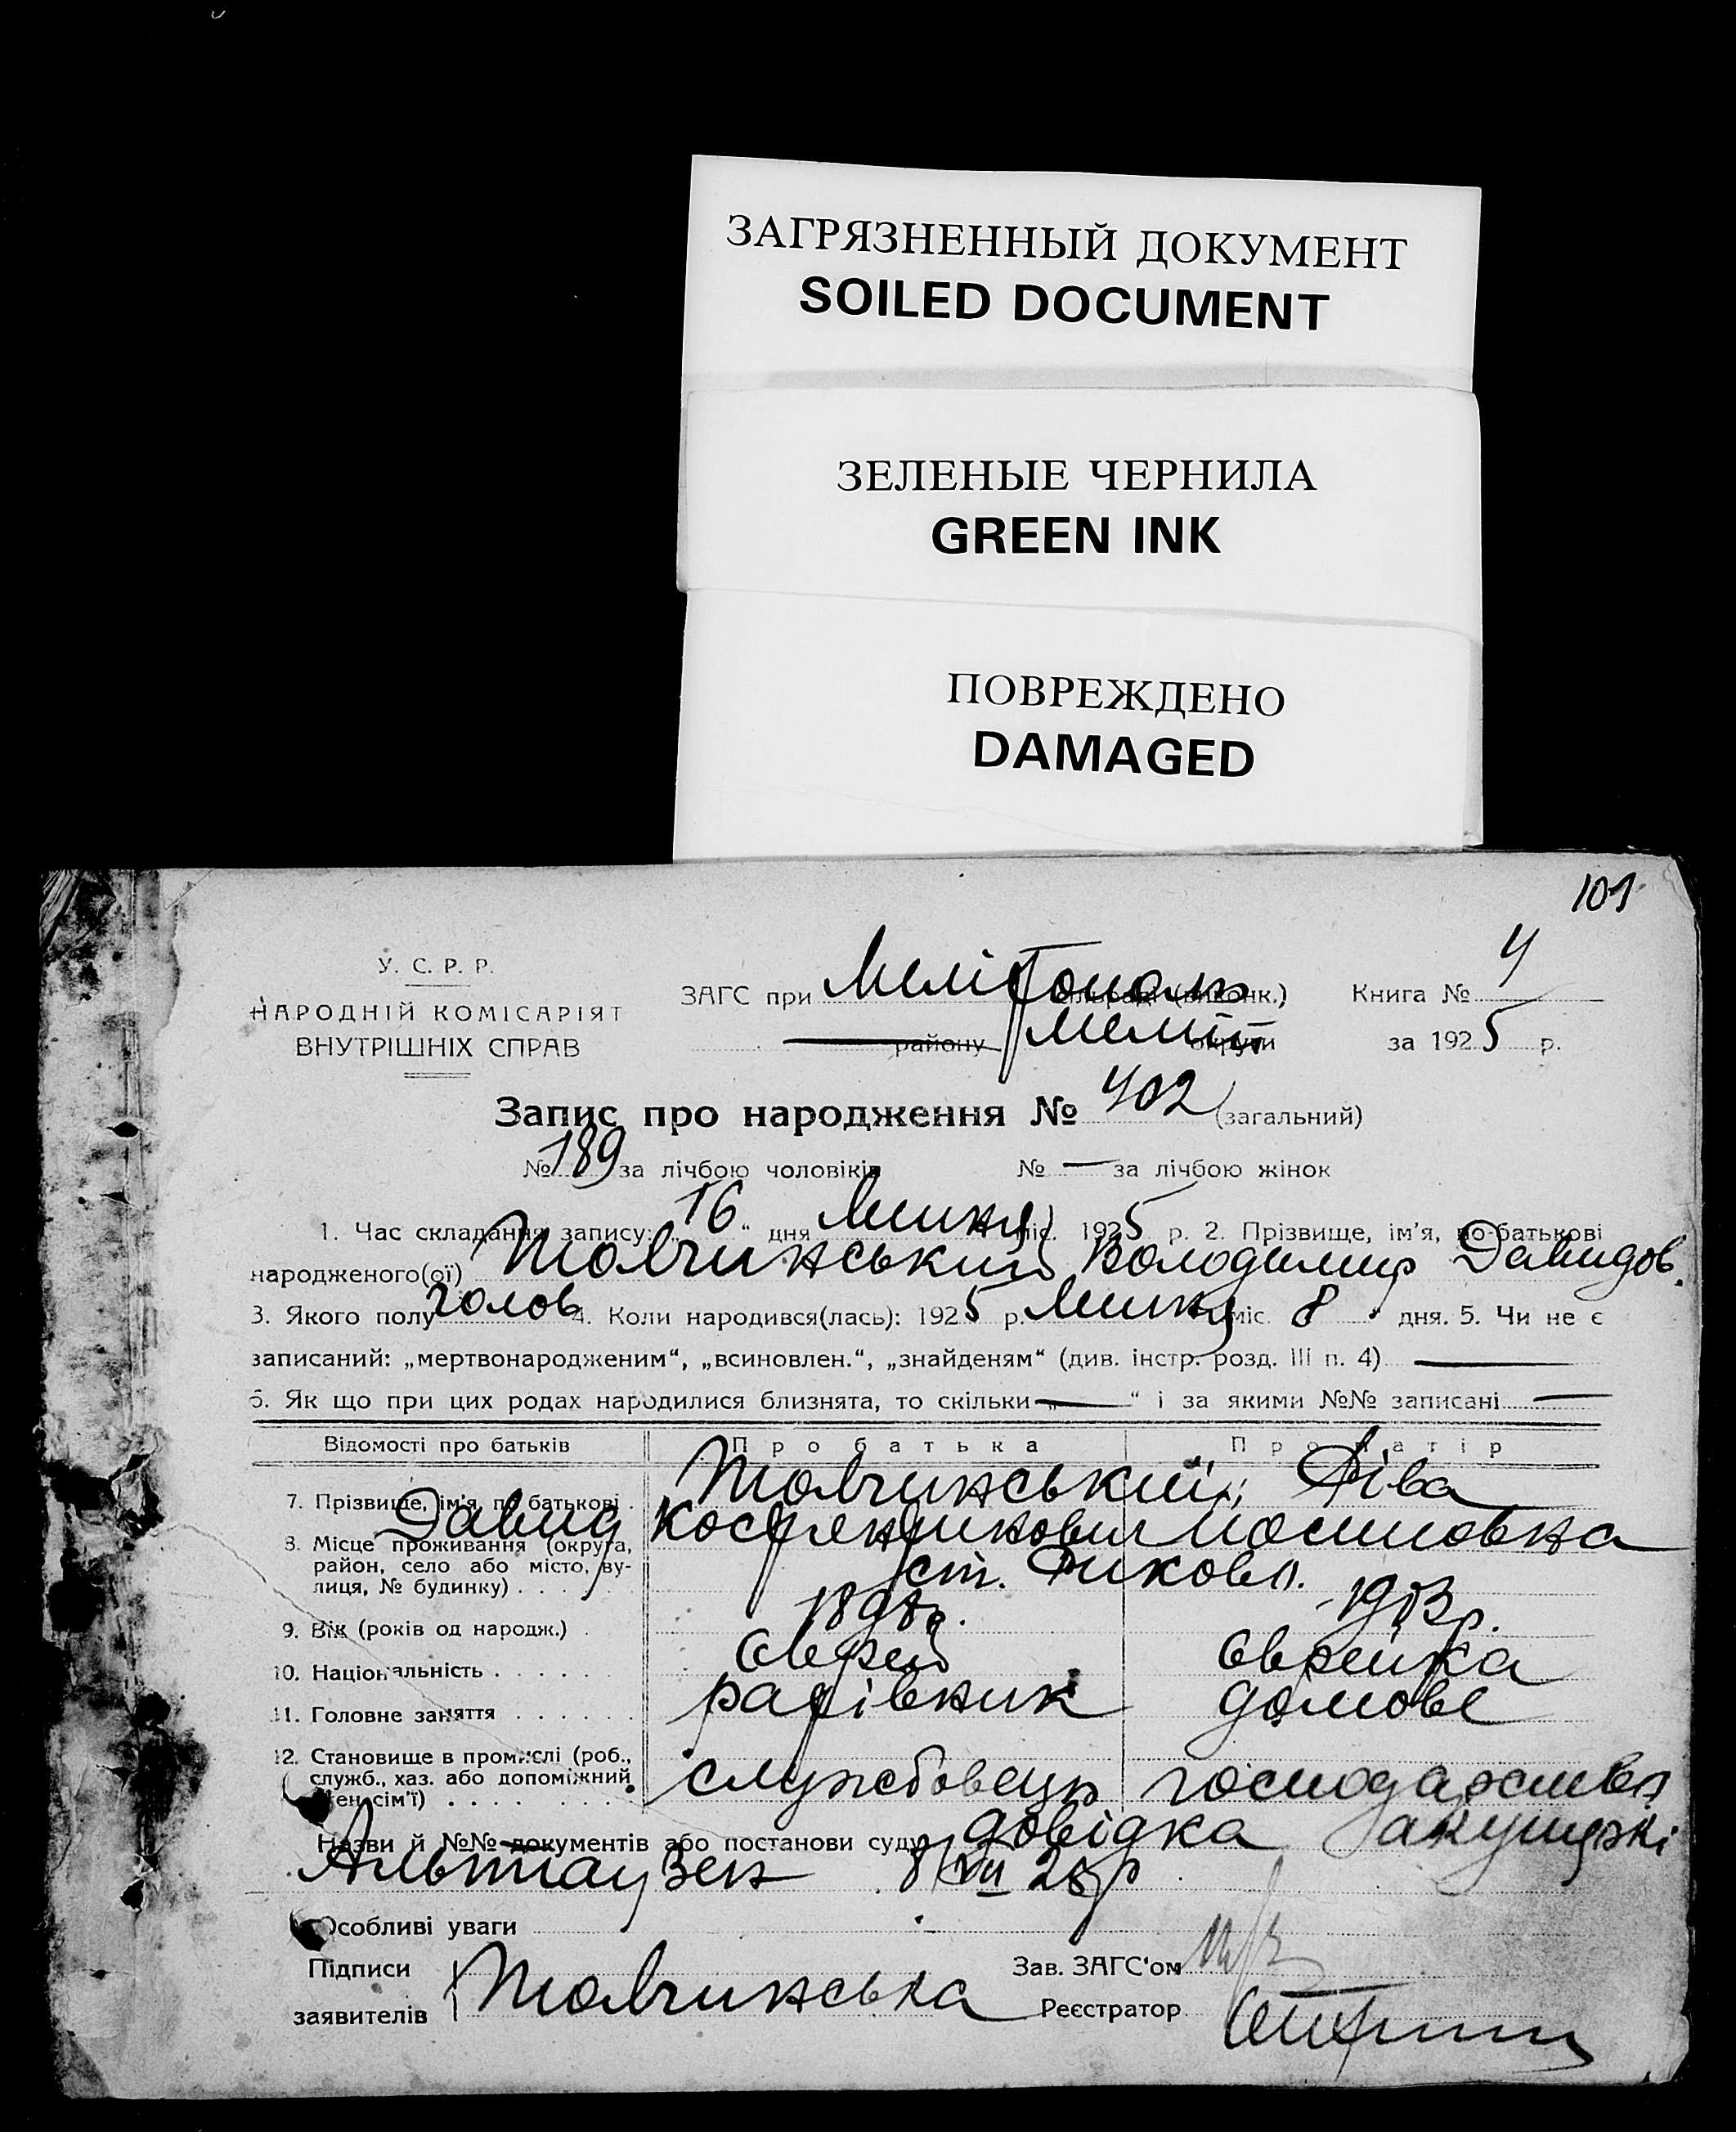 ЗАГРЯЗНЕННЫЙ ДОКУМЕНТ
SOILED DOCUMENT
ЗЕЛЕНЫЕ ЧЕРНИЛА
GREEN INK
ПОВРЕЖДЕНО
DAMAGED
101
У. С. Р. Р.
НАРОДНІЙ КОМІСАРІЯТ
ВНУТРІШНІХ СПРАВ
ЗАГС при Мелітополь сільраді (виконк.) Книга № 4
району Меліт округи за 1925 р.
Запис про народження № 402 (загальний)
№ 189 за лічбою чоловіків № — за лічбою жінок
1. Час складання запису: „16“ дня Липня міс. 1925 р. 2. Прізвище, ім'я, по-батькові
народженого(ої) Товчинський Володимир Давидов.
3. Якого полу чолов 4. Коли народився(лась): 1925 р. Липня міс. 8 дня. 5. Чи не є
записаний: „мертвонародженим“, „всиновлен.“, „знайденям“ (див. інстр. розд. III п. 4) —
6. Як що при цих родах народилися близнята, то скільки „—“ і за якими №№ записані —
Відомості про батьків Про батька Про матір
7. Прізвище, ім'я, по батькові Товчинський Давид Ріва Йосиповна
8. Місце проживання (округа,
район, село або місто, ву-
лиця, № будинку) ст. Рикове.
9. Вік (років од народж.) 1898р. 1903р.
10. Національність Єврей Єврейка
11. Головне заняття домове
12. Становище в промислі (роб.,
служб., хаз. або допоміжний
член сім'ї) службовець господарство
Назви й №№ документів або постанови суду довідка акушерки
Альтгаузен 8/VII 25р
Особливі уваги
Підписи Зав. ЗАГС'ом
заявителів Товчинська Реєстратор